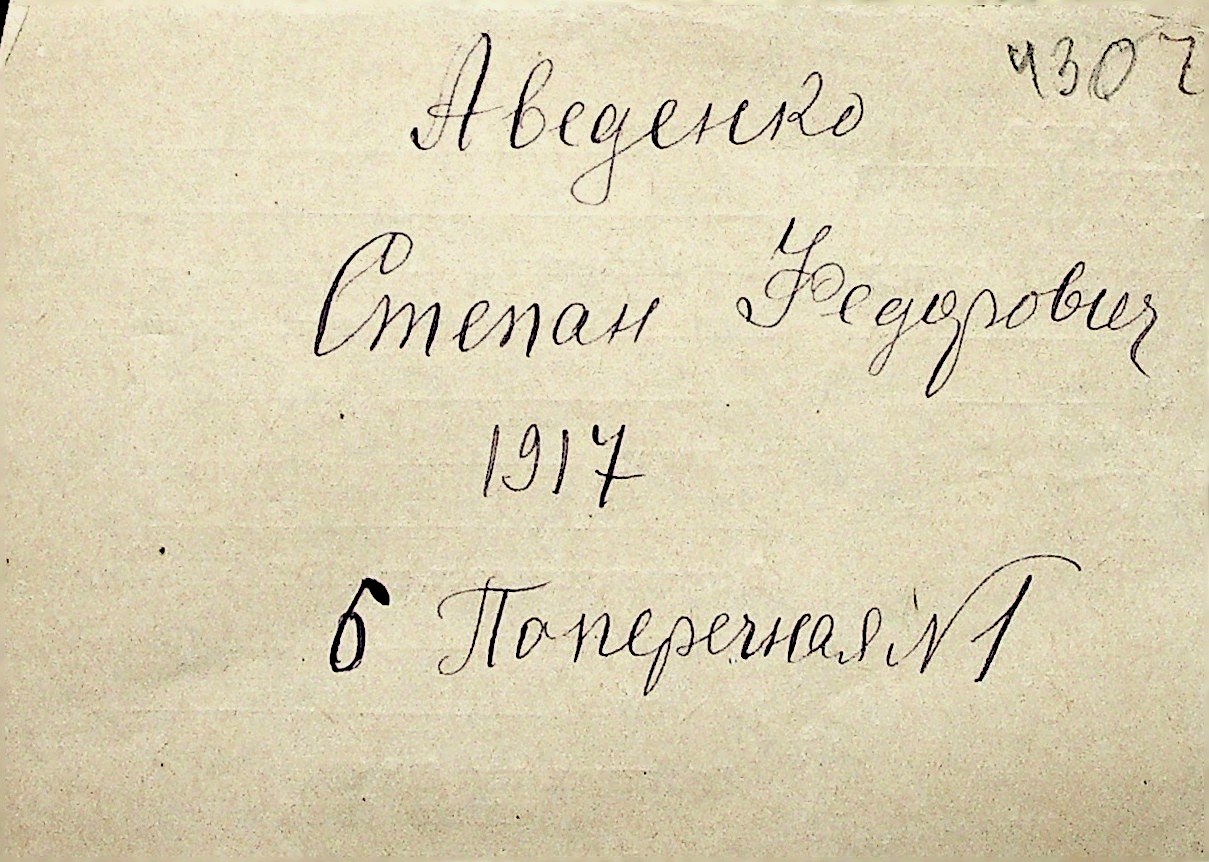 4307
Аведенко
Степан Федорович
1917
6 Поперечная N 1